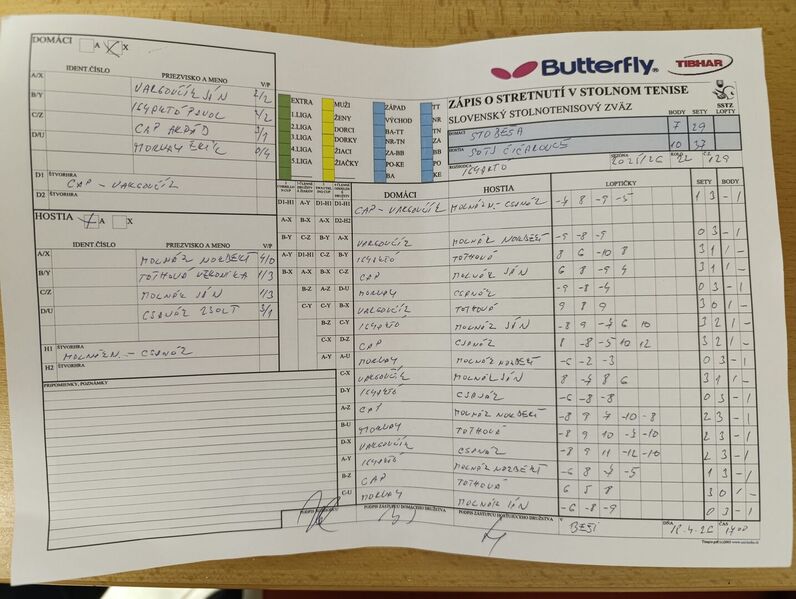 DOMÁCI A X
IDENT.ČÍSLO PRIEZVISKO A MENO V/P
A/X VARGOVČÍK JÁN 2/2
B/Y IGYARTÓ
C/Z CAP ARPÁD 3/1
D/U MORVAY ERIK 0/4
D1 ŠTVORHRA
CAP - VARGOVČÍK
D2 ŠTVORHRA
HOSTIA A X
IDENT.ČÍSLO PRIEZVISKO A MENO V/P
A/X MOLNÁR NORBERT 4/0
B/Y TÓTHOVÁ VERONIKA 1/3
C/Z MOLNÁR JÁN 1/3
D/U CSANÁZ ZSOLT 3/1
H1 ŠTVORHRA
MOLNÁR N. - CSANÁZ
H2 ŠTVORHRA
PRIPOMIENKY, POZNÁMKY
Butterfly TIBHAR
EXTRA MUŽI ZÁPAD TT
1.LIGA ŽENY VÝCHOD NR
2.LIGA DORCI BA-TT TN
3.LIGA DORKY NR-TN ZA
4.LIGA ŽIACI ZA-BB BB
5.LIGA ŽIAČKY PO-KE PO
BA KE
ZÁPIS O STRETNUTÍ V STOLNOM TENISE
SLOVENSKÝ STOLNOTENISOVÝ ZVÄZ
BODY SETY SSTZ LOPTY
DOMÁCI STO BEŠA 7 29
HOSTIA SOTJ ČIČAROVCE 10 37
ROZHODCA IGYARTÓ SEZÓNA 2025/26 KOLO 22 Č.Z. 129
DOMÁCI HOSTIA LOPTIČKY SETY BODY
D1-H1 A-Y D1-H1 D1-H1 CAP - VARGOVČÍK MOLNÁR N. - CSANÁZ -7 8 -9 -5 1 3 - 1
A-X B-X A-X D2-H2
B-Y C-Z B-Y A-X VARGOVČÍK MOLNÁR NORBERT -8 -8 -9 0 3 - 1
A-Y D1-H1 C-Z B-Y IGYARTÓ TÓTHOVÁ 8 6 -10 8 3 1 1 -
B-X A-X B-X C-Z CAP MOLNÁR JÁN 6 8 -9 4 3 1 1 -
D-U MORVAY CSANÁZ -9 -8 -4 0 3 - 1
VARGOVČÍK TÓTHOVÁ 9 8 9 3 0 1 -
B-Z IGYARTÓ MOLNÁR JÁN -8 9 -7 6 10 3 2 1 -
C-X D-Z CAP CSANÁZ 8 -8 -5 10 12 3 2 1 -
A-Y A-U MORVAY MOLNÁR NORBERT -6 -2 -3 0 3 - 1
C-X VARGOVČÍK MOLNÁR JÁN 8 -7 8 6 3 1 1 -
D-Y IGYARTÓ CSANÁZ -6 -8 -8 0 3 - 1
A-Z CAP MOLNÁR NORBERT -8 9 7 -10 -8 2 3 - 1
B-U MORVAY TÓTHOVÁ -8 9 10 -3 -10 2 3 - 1
D-X VARGOVČÍK CSANÁZ -8 9 11 -12 -10 2 3 - 1
A-Y IGYARTÓ MOLNÁR NORBERT -6 8 -7 -5 1 3 - 1
B-Z CAP TÓTHOVÁ 6 5 8 3 0 1 -
C-U MORVAY MOLNÁR JÁN -6 -8 -9 0 3 - 1
PODPIS ZÁSTUPCU DOMÁCEHO DRUŽSTVA PODPIS ZÁSTUPCU HOSŤUJÚCEHO DRUŽSTVA V BEŠI DŇA 18.4.26 ČAS 17:00